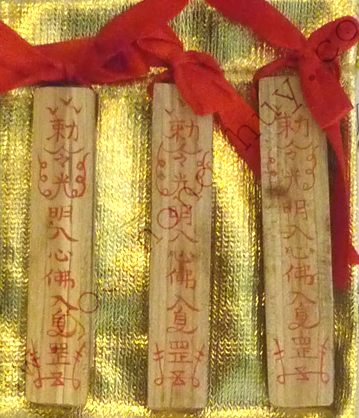 勅令光明入心佛入夏罡
勅令光明入心佛入夏罡
勅令光明入心佛入夏罡